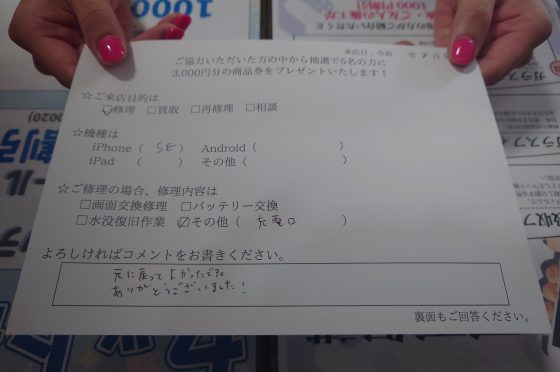 来店日：令和　年 8 月
ご協力いただいた方の中から抽選で5名の方に
3,000円分の商品券をプレゼントいたします！
☆ご来店目的は
☑修理 □買取 □再修理 □相談
☆機種は
iPhone（ SE ） Android（　　　）
iPad （　　　） その他（　　　）
☆ご修理の場合、修理内容は
□画面交換修理 □バッテリー交換
□水没復旧作業 ☑その他（ 充電口 ）
よろしければコメントをお書きください。
元に戻って よかったです。
ありがとうございました！
裏面もご回答ください。
1000円割引
2020)
割引